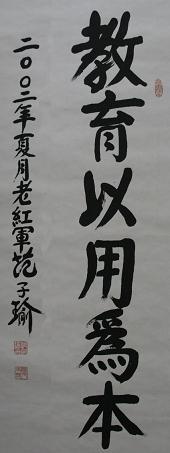 教育以用爲本
二〇〇二年夏月老紅軍范子瑜